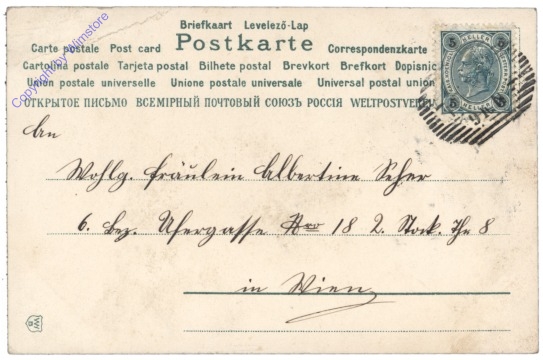 Briefkaart Levelező-Lap
Carte postale Post card Postkarte Correspondenzkarte
Cartolina postale Tarjeta postal Bilhete postal Brevkort Brefkort Dopisnic
Union postale universelle Unione postale universale Universal postal union
ОТКРЫТОЕ ПИСЬМО ВСЕМІРНЫЙ ПОЧТОВЫЙ СОЮЗЪ РОССІЯ WELTPOSTVEREIN
Copyright by Wimstore
5 HELLER 5
5 HELLER 5
An
Wohlg. Fräulein Albertine Seher
6. Bez. Ufergasse Nro 18 2. Stock. Th 8
in Wien
W
B